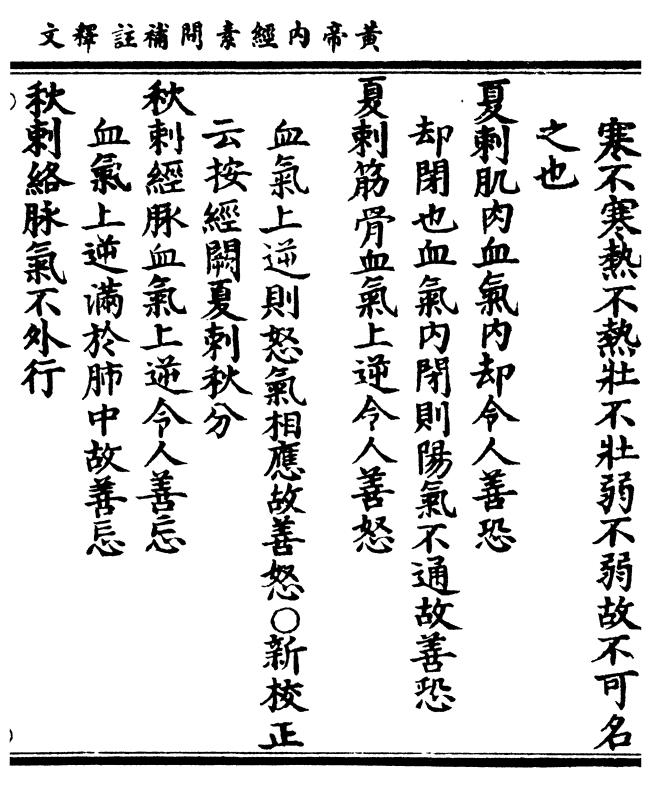 黃帝內經素問補註釋文
寒不寒熱不熱壯不壯弱不弱故不可名
之也
夏刺肌肉血氣內却令人善恐
却閉也血氣內閉則陽氣不通故善恐
夏刺筋骨血氣上逆令人善怒
血氣上逆則怒氣相應故善怒○新校正
云按經闕夏刺秋分
秋刺經脉血氣上逆令人善忘
血氣上逆滿於肺中故善忘
秋刺絡脉氣不外行